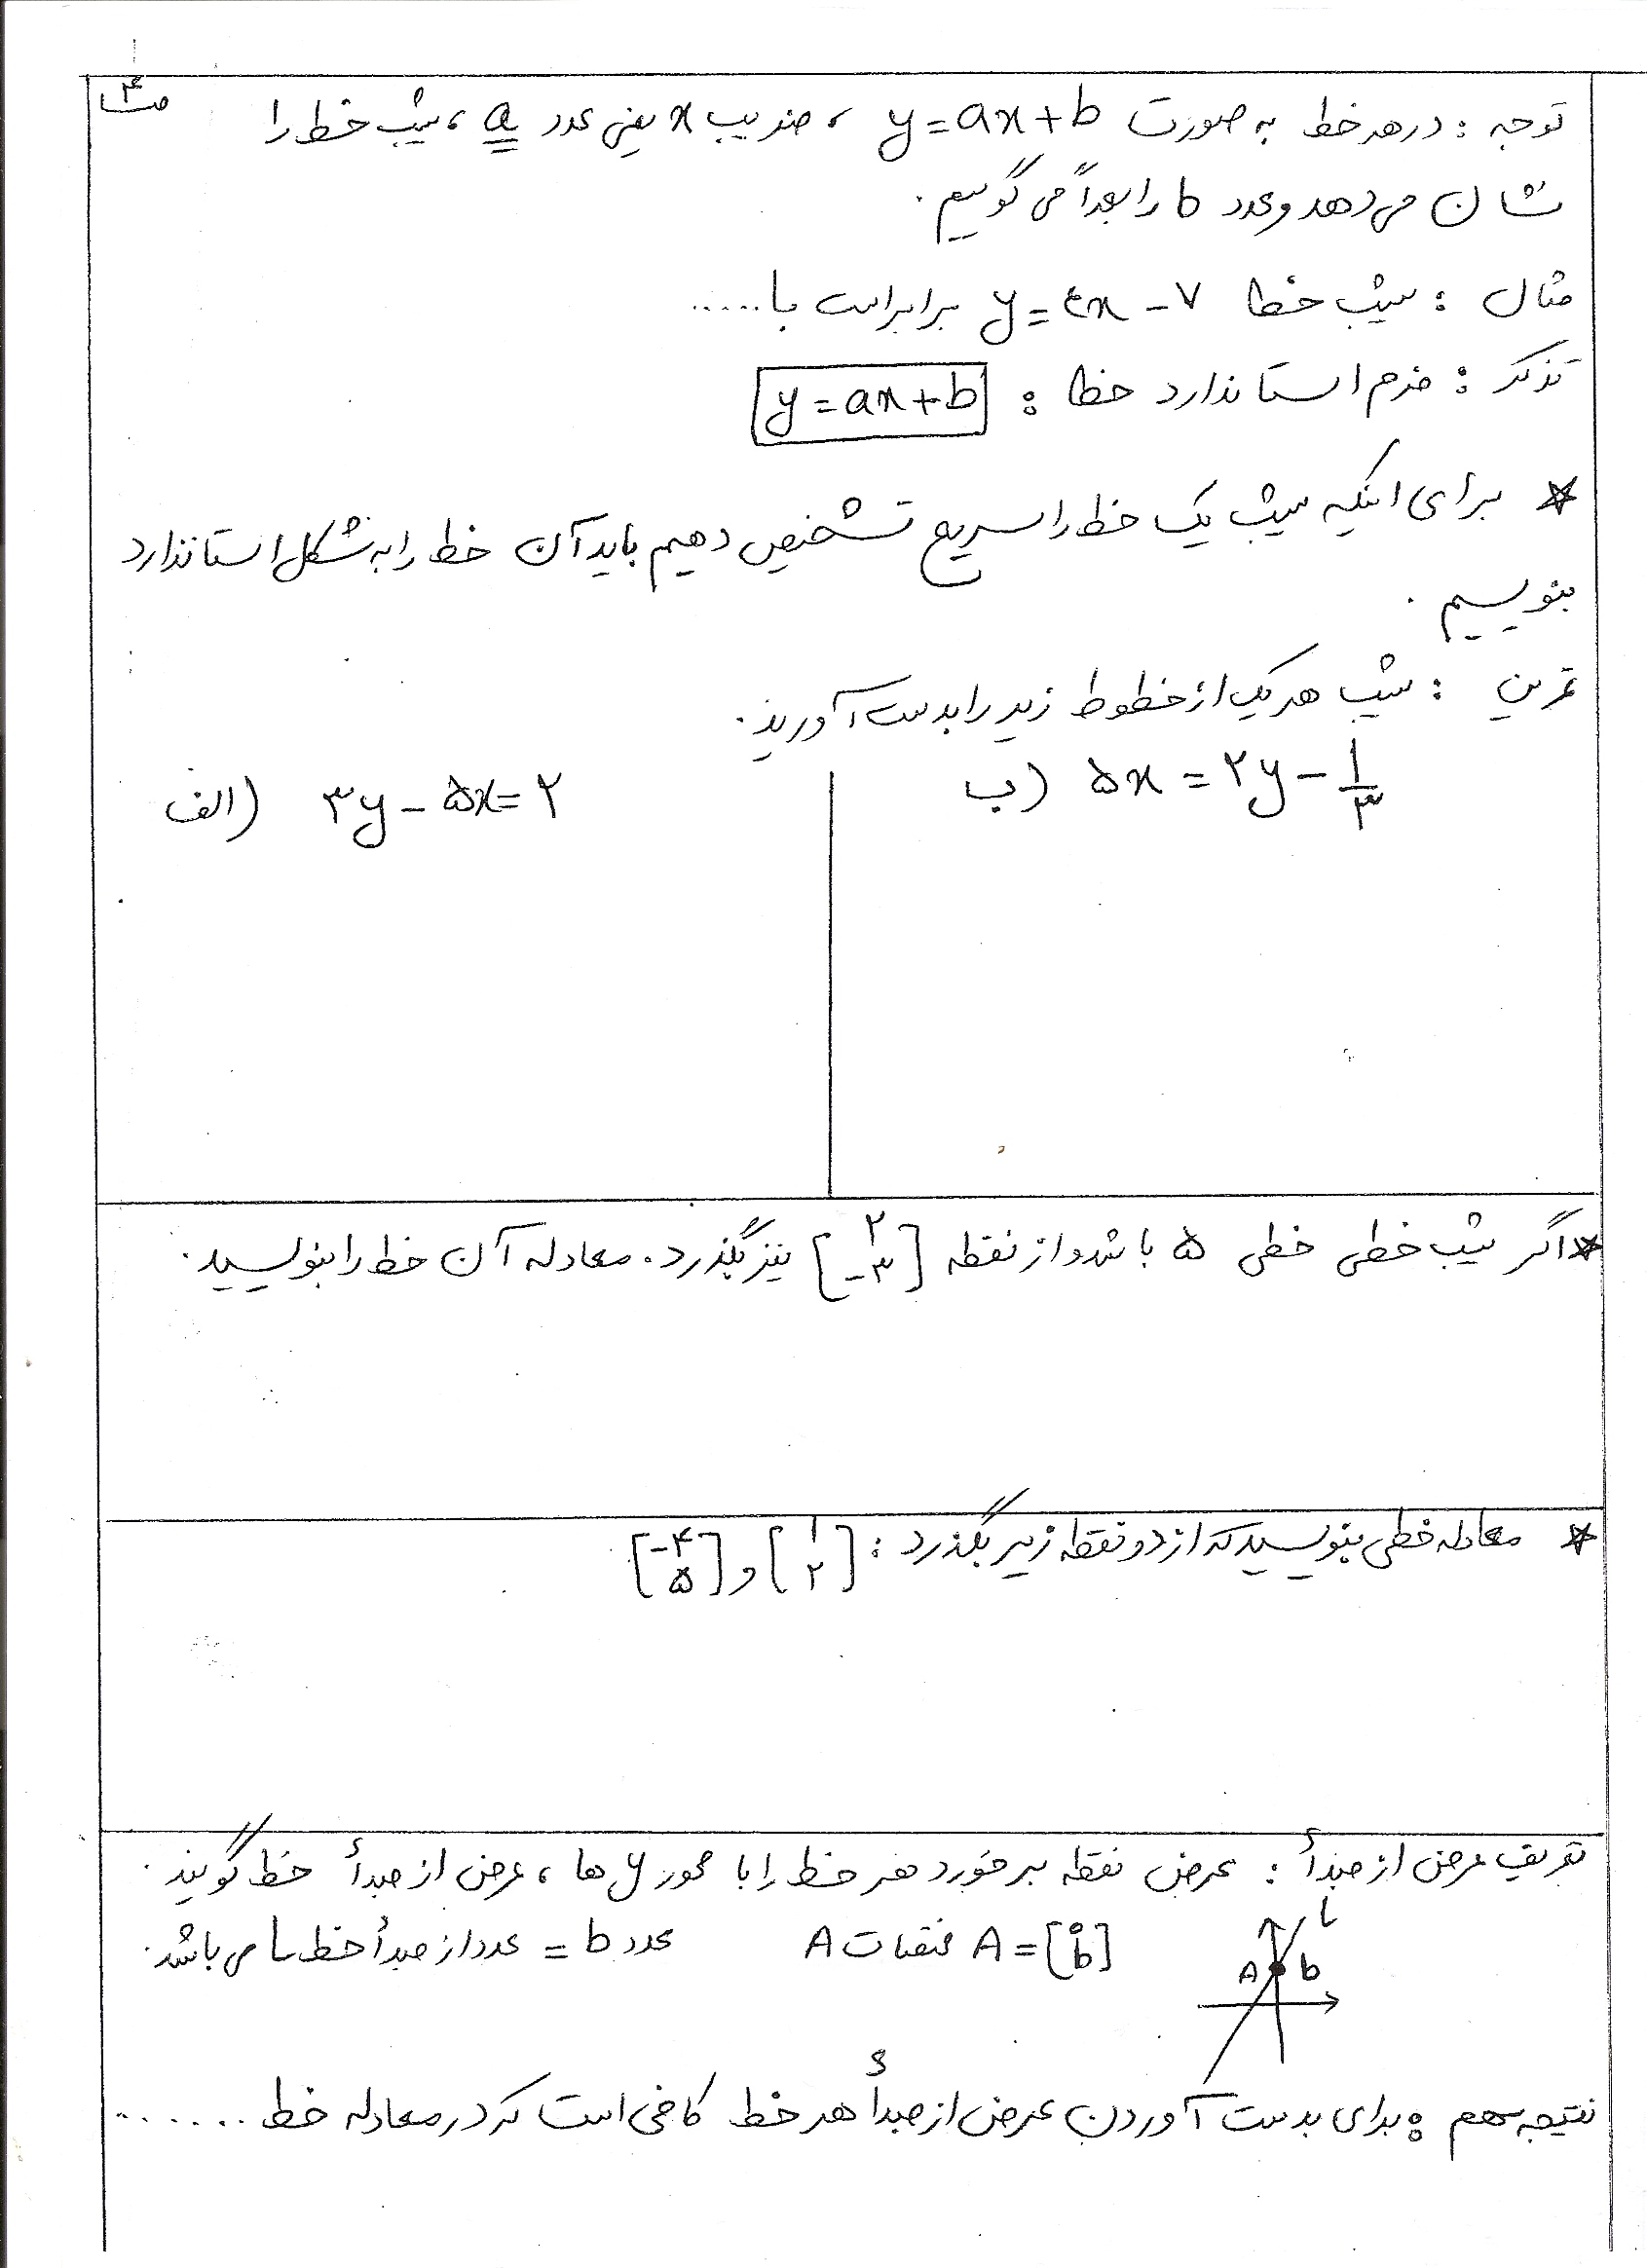 ص۴
توجه : در هر خط به صورت y=ax+b ، ضریب x یعنی عدد a ، شیب خط را
نشان می‌دهد و عدد b را بعداً می گوییم .
مثال : شیب خط y=۴x-۷ برابر است با .....
تذکر : فرم استاندارد خط : y=ax+b
* برای اینکه شیب یک خط را سریع تشخیص دهیم باید آن خط را به شکل استاندارد
بنویسیم .
تمرین : شیب هر یک از خطوط زیر را بدست آورید .
ب) ۵x = ۲y - ۱/۳
الف) ۳y - ۵x = ۲
* اگر شیب خطی خطی ۵ باشد و از نقطه [۲ -۳] نیز بگذرد . معادله آن خط را بنویسید .
* معادله خطی بنویسید که از دو نقطه زیر بگذرد : [۱ ۲] و [-۴ ۵]
تعریف عرض از مبدأ : عرض نقطه برخورد هر خط را با محور y ها ، عرض از مبدأ خط گویند .
L
A b
A = [۰ b] مختصات A
عدد b = عدد از مبدأ خط L می باشد .
نتیجه مهم : برای بدست آوردن عرض از مبدأ هر خط کافی است که در معادله خط .......